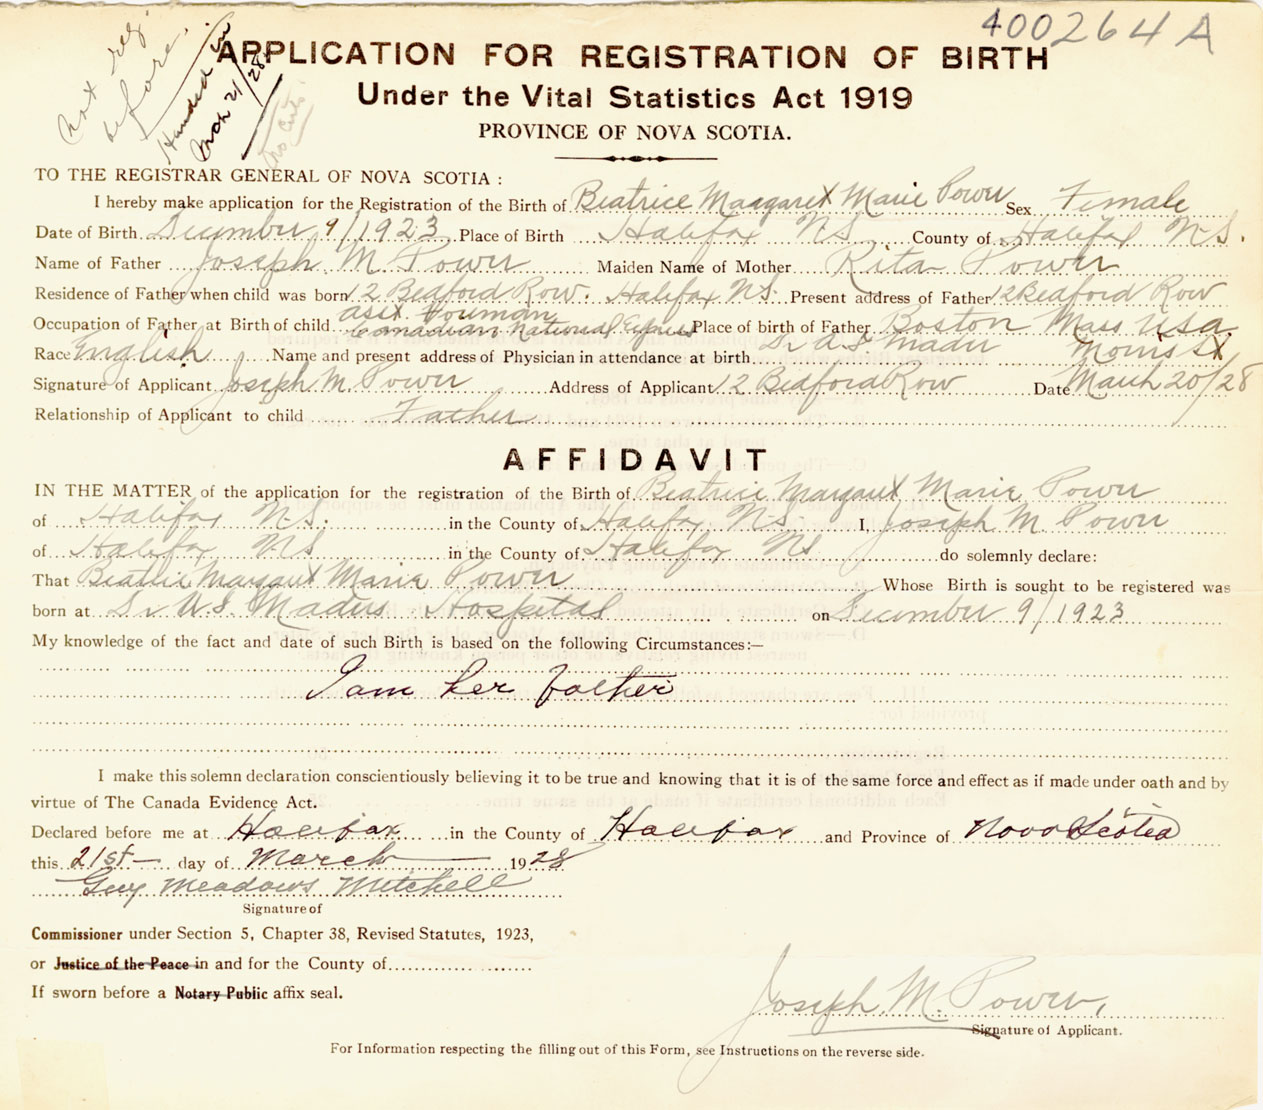 400264A
Not reg.
before.
Handed in
Mch 21/28
APPLICATION FOR REGISTRATION OF BIRTH
Under the Vital Statistics Act 1919
PROVINCE OF NOVA SCOTIA.
TO THE REGISTRAR GENERAL OF NOVA SCOTIA :
I hereby make application for the Registration of the Birth of Beatrice Margaret Marie Power Sex Female
Date of Birth December 9/1923 Place of Birth Halifax NS County of Halifax N.S.
Name of Father Joseph M. Power Maiden Name of Mother Rita Power
Residence of Father when child was born 12 Bedford Row. Halifax NS. Present address of Father 12 Bedford Row
Occupation of Father at Birth of child asst Foreman Canadian National Express Place of birth of Father Boston Mass USA.
Race English Name and present address of Physician in attendance at birth Dr A.S Mader Morris St
Signature of Applicant Joseph M. Power Address of Applicant 12 Bedford Row Date March 20/28
Relationship of Applicant to child Father
AFFIDAVIT
IN THE MATTER of the application for the registration of the Birth of Beatrice Margaret Marie Power
of Halifax N.S. in the County of Halifax NS I, Joseph M Power
of Halifax N.S in the County of Halifax NS do solemnly declare:
That Beatrice Margaret Marie Power Whose Birth is sought to be registered was
born at Dr A.S. Maders Hospital on December 9/1923
My knowledge of the fact and date of such Birth is based on the following Circumstances:—
I am her father
I make this solemn declaration conscientiously believing it to be true and knowing that it is of the same force and effect as if made under oath and by
virtue of The Canada Evidence Act.
Declared before me at Halifax in the County of Halifax and Province of Nova Scotia
this 21st day of March 1928
Guy Meadows Mitchell
Signature of
Commissioner under Section 5, Chapter 38, Revised Statutes, 1923,
or Justice of the Peace in and for the County of
If sworn before a Notary Public affix seal.
Joseph M. Power,
Signature of Applicant.
For Information respecting the filling out of this Form, see Instructions on the reverse side.